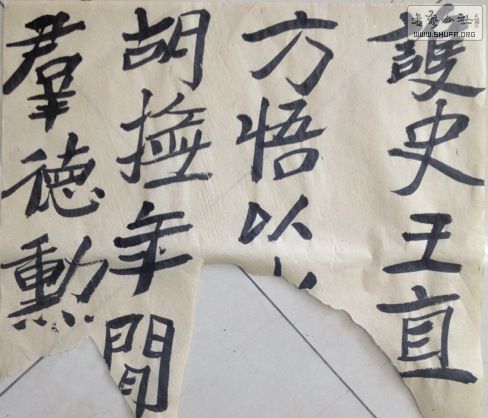 護史王直
方悟以
胡撫年間
羣徳勳
書藝公社
WWW.SHUFA.ORG